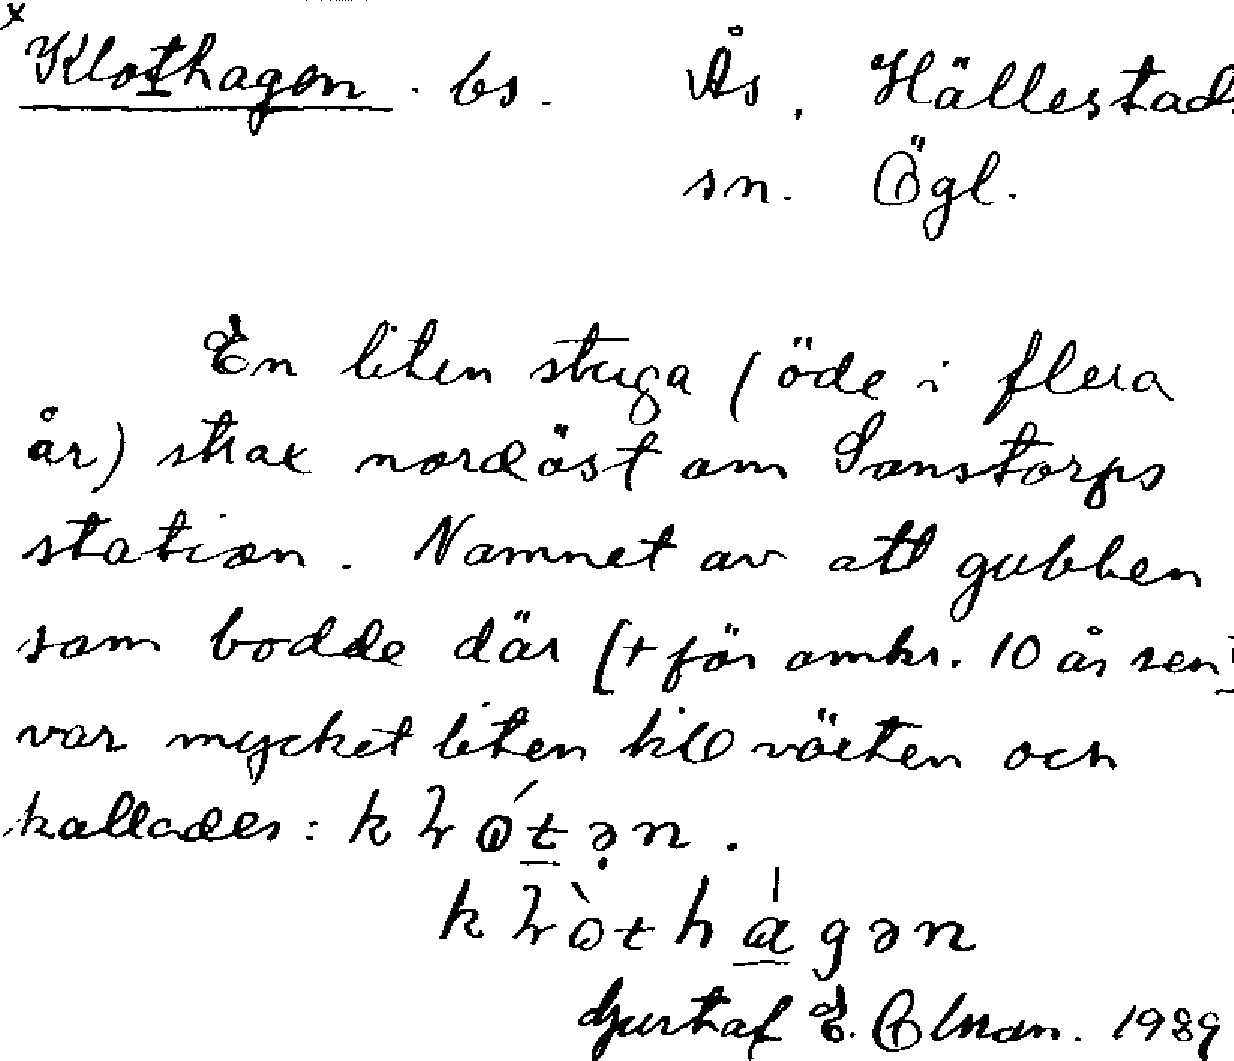 x
Klothagen . bs. Ås, Hällestad
sn. Ögl.
En liten stuga (öde i flera
år) strax nordöst om Sonstorps
station. Namnet av att gubben
som bodde där (+ för omkr. 10 år sen)
var mycket liten till växten och
kallades:
Gustaf E. 1989